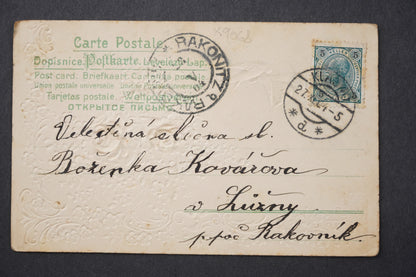 Carte Postale
Dopisnice. Postkarte. Levelező-Lap.
Post card. Briefkaart. Cartolina postale.
Union postale universelle.
Tarjeta postal. Weltpostverein.
ОТКРЫТОЕ ПИСЬМО
RAKONITZ
KLADNO
Velectěna slečna sl.
Boženka Kovářova
v Lužny
p. poč Rakovník.